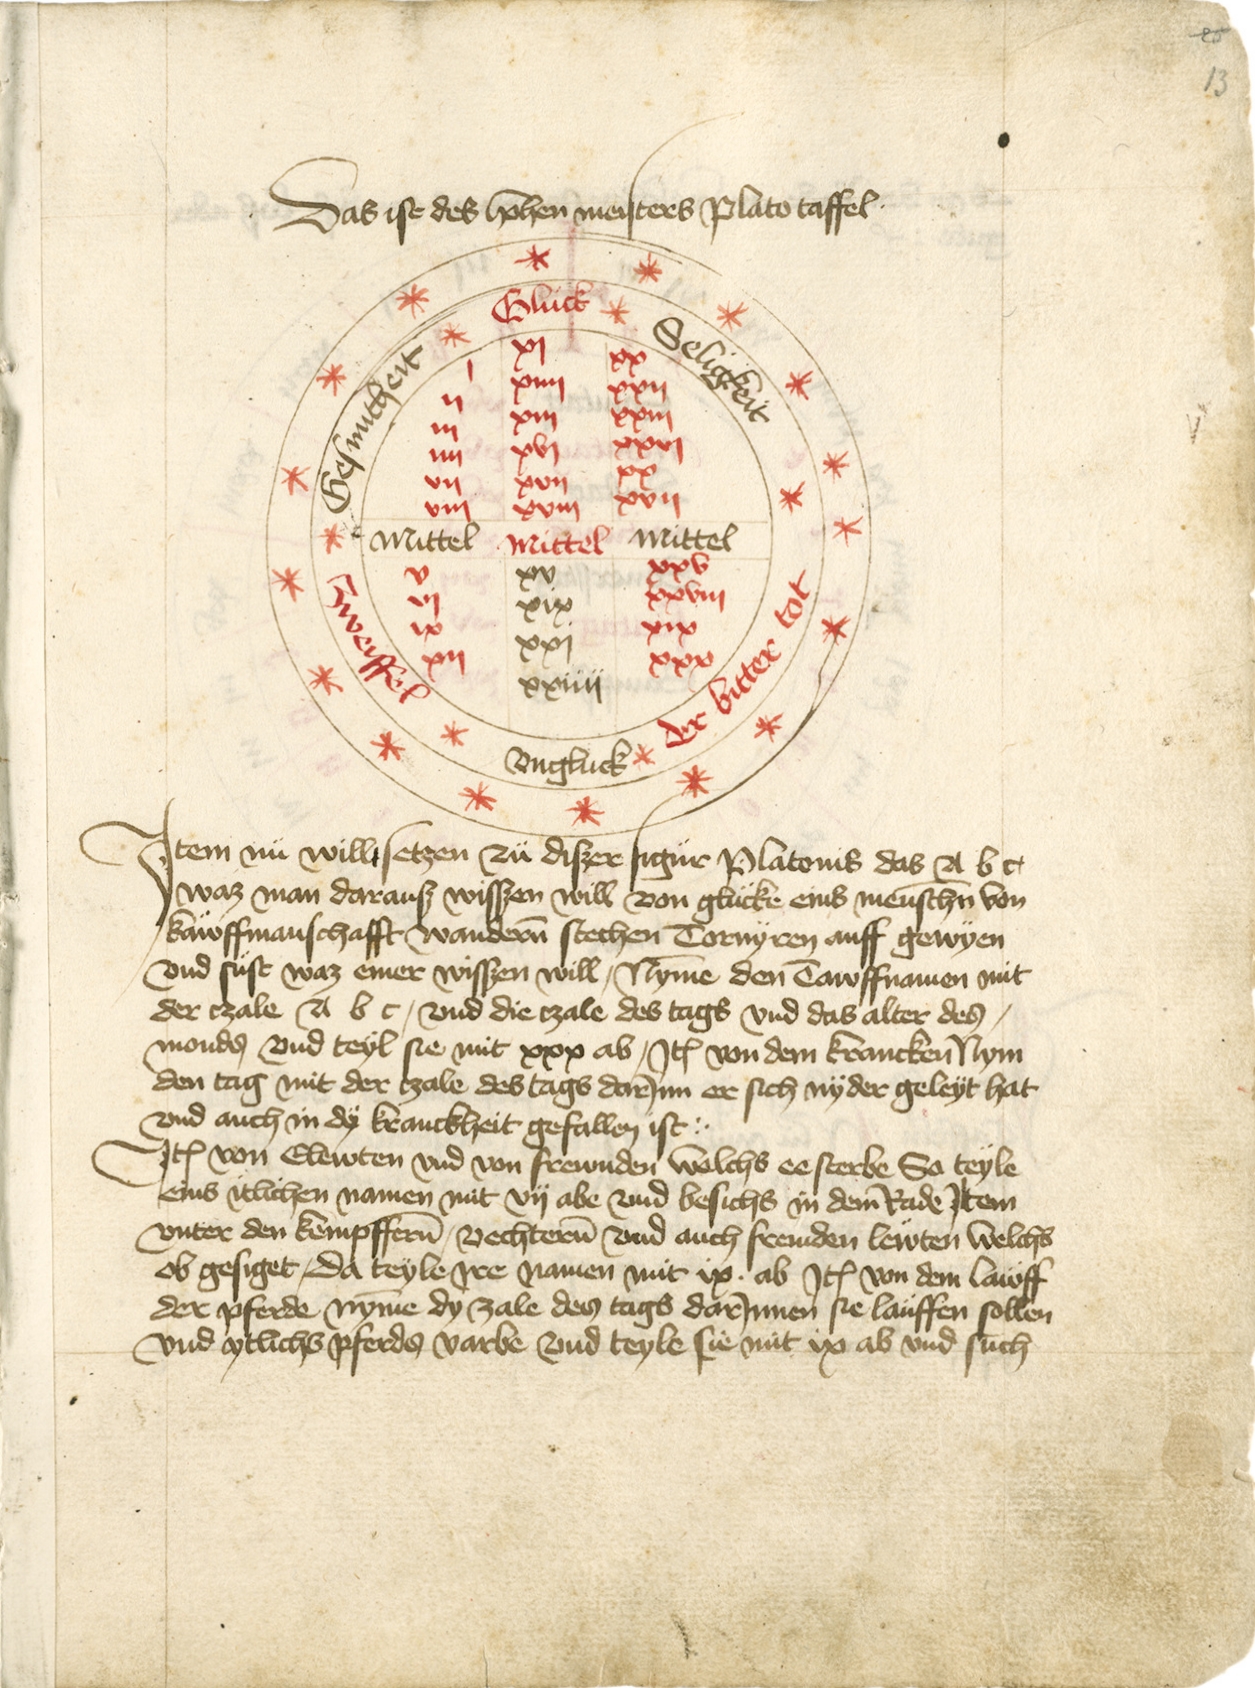 25
13
Das ist des hohen meisters Plato taffel
Glück
Seligkeit
Gesuntheit
xi xx
i xiiii xxii
ii xiii xxiii
iii xvi xxvi
iiii xvii xx
vii xviii xvii
viii
Mittel Mittel Mittel
v xv xxv
vi xix xxviii
ix xxi xix
xii xxiiii xxx
Zweiffel
der bitter tot
Vngluck
Item nü will setzen zü diszer figür Platonis das A b c
waz man darausz wiszen will von glücke eins menschn̄ von
kaẅffmanschafft wandern̄ stechen Tornyren auff gewyen
vnd süst waz einer wiszen will / Nym̄e den Tawffnamen mit
der czale A b c / vnd die czale des tags vnd das alter des /
monds vnd teyl sie mit xxx ab / Itē von dem krancken Nym
den tag mit der czale des tags darJnn er sich nÿder geleyt hat
vnd auch in dÿ kranckheit gefallen ist :.
Itē von Elewten vnd von frewnden Welchs ee sterbe So teyle
eins itlichen namen mit vij abe vnd besichs in dem Rade Item
vnter den kempffern̄ / vechtern̄ vnd auch fremden lewten Welchs
ob gesiget / Da teyle ire namen mit ix · ab Itē von dem laẅff
der pferde nym̄e dy zale des tags darJnnen sie laüffen sollen
vnd ytlichs pferds varbe vnd teyle sie mit ix ab vnd such